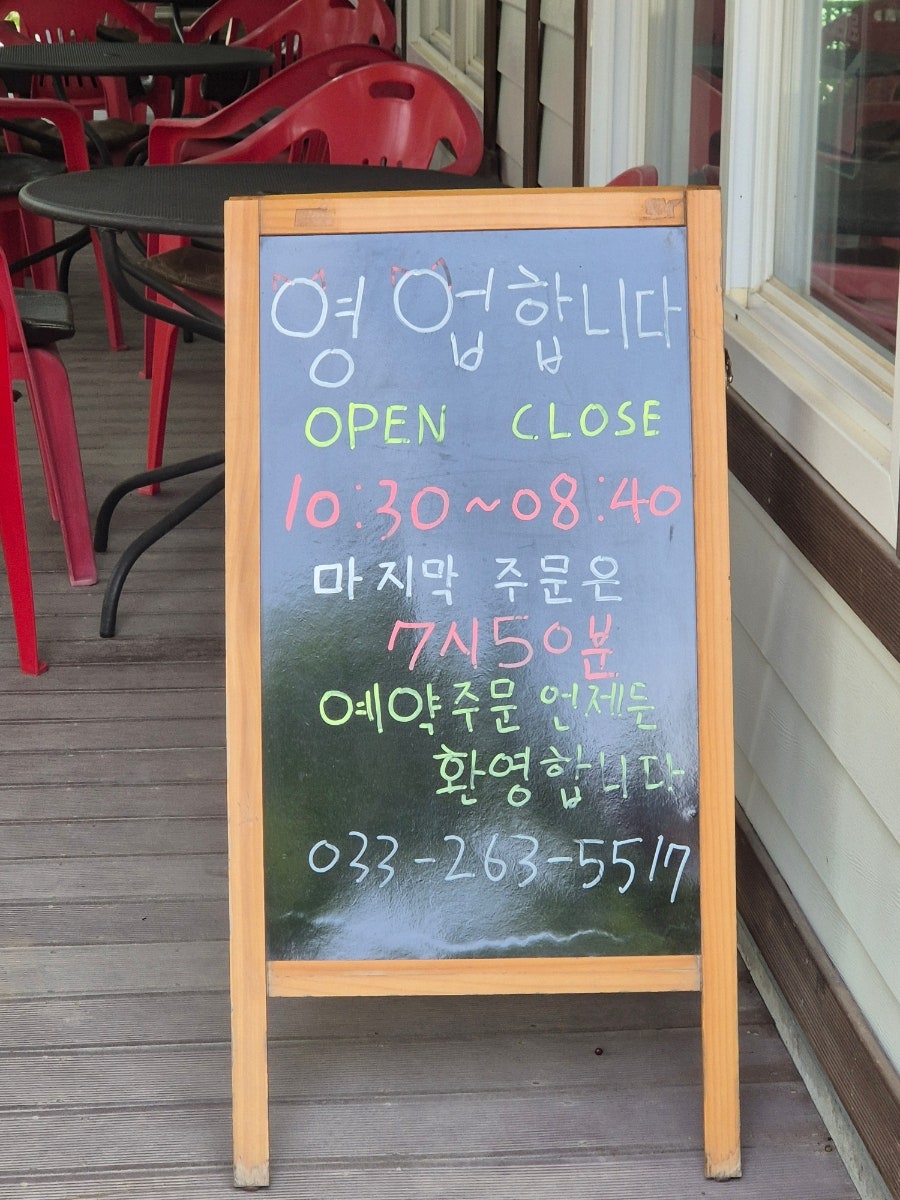 영업합니다
OPEN CLOSE
10:30~08:40
마지막 주문은
7시50분
예약주문 언제든
환영합니다
033-263-5517